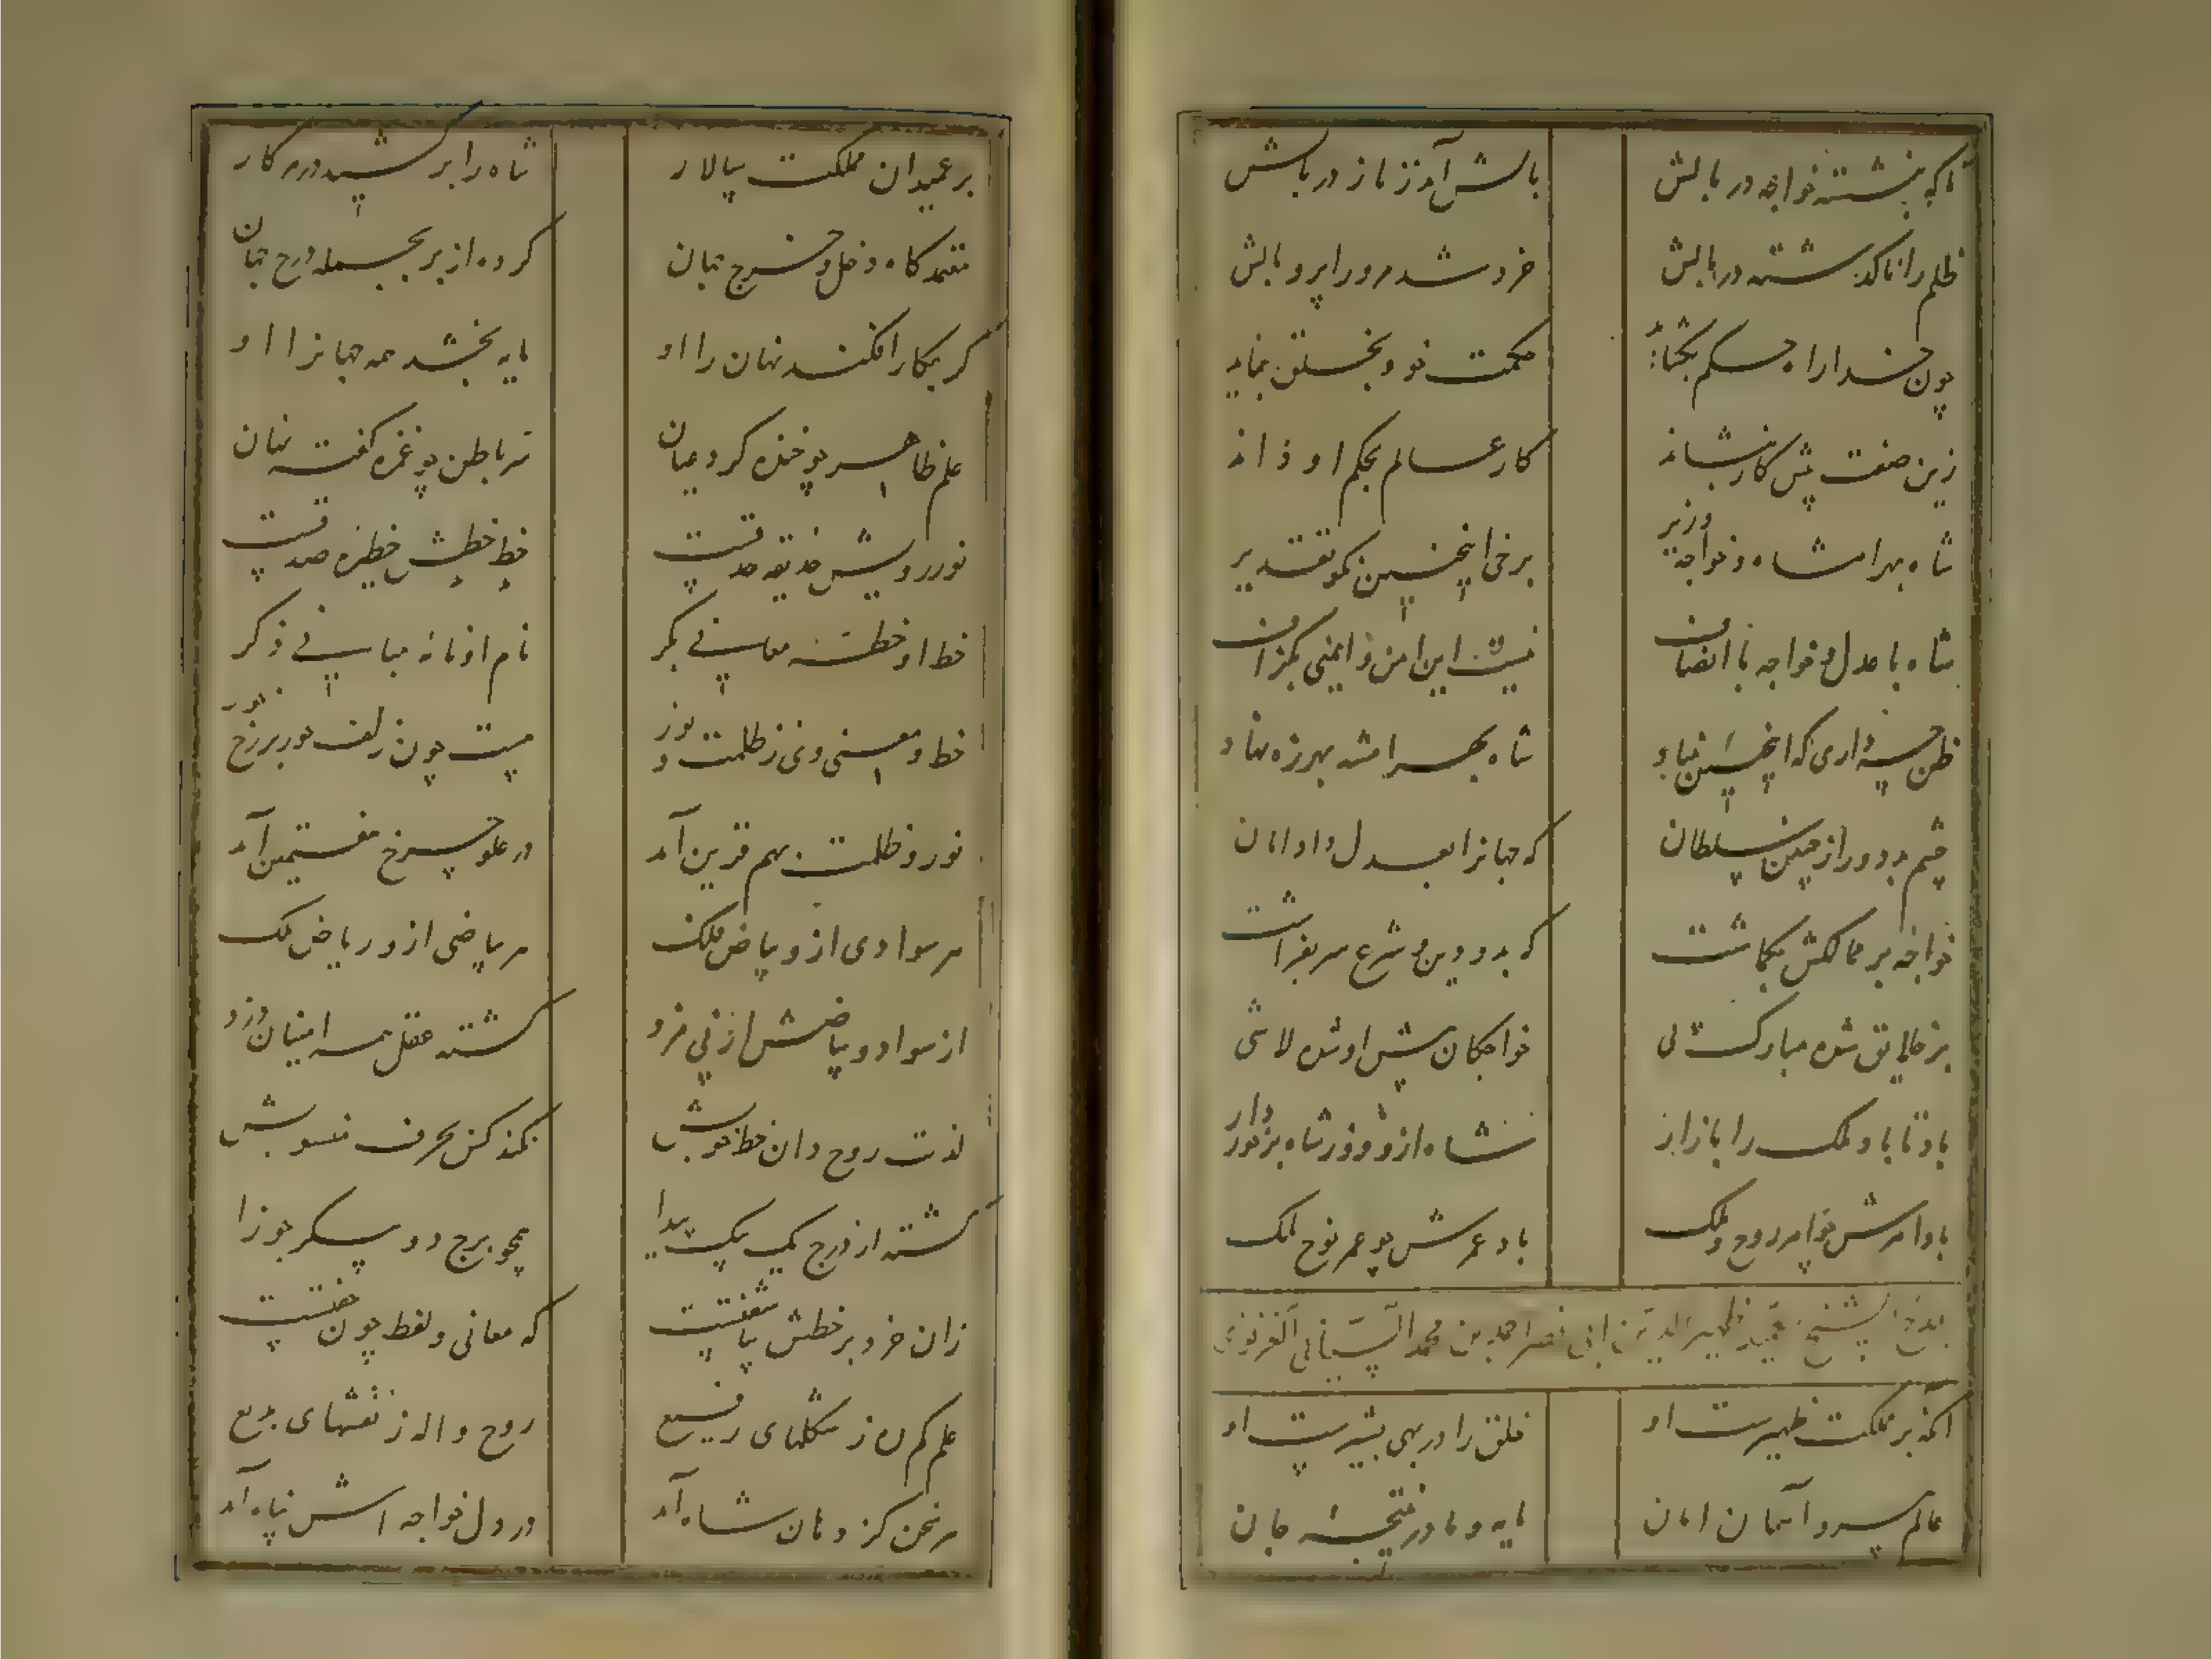 تا که بنشسته خواجه در بالش بالش آمد ز ناز در بالش
ظلم را تا که کشته در بالش خرد شد مرورا پر و بالش
چون خدا راه حکم بگشاید حکمت خود بخلق بنماید
زین صفت پیش کار بنشاند کار عالم بحکم او داند
شاه بهرامشاه و خواجه وزیر برخ اینچنین نکو تقدیر
شاه با عدل و خواجه با انصاف نیست این امن و ایمنی بگزاف
ظن چه داری که اینچنین بنیاد شاه بهرامشه بهرزه نهاد
چشم بد دور از چنین سلطان که جهانرا بعدل داد امان
خواجه بر ممالکش بگماشت که بدو دین و شرع سر بفراشت
بر خلایق شده مبارک پی خواجگان پیش او شده لاشی
باد تا باد ملک را بازار شاه ازو و وز شاه برخوردار
باد امرش چو امر روح و ملک باد عمرش چو عمر نوح ملک
مدح الشیخ عمید ظهیرالدین ابی نصر احمد بن محمد الشیبانی الغزنوی
آنکه بر مملکت ظهیرست او خلق را در بهی بشیرست او
عالم پیر و آسمان امان مایه و مادر نتیجه جان
بر عمیدان مملکت سالار شاه را برکشیده در هر کار
معتمد کاه دخل و خرج جهان کرده از بر بجمله درج جهان
کر بکار افکند نهان را او مایه بخشد همه جهانرا او
علم ظاهر چو خنده کرد عیان سر باطن چو غمزه گفته نهان
نور رویش حدیقه حدقست خط خطش خطیره صدقست
خط او خطه معانی بکر نام او نامه مبانی ذکر
خط و معنی وی ز ظلمت و نور هست چون زلف حور بر رخ حور
نور و ظلمت بهم قرین آمد در علو چرخ هفتمین آمد
هر سوادی ازو بیاض ملک هر بیاضی ازو ریاض ملک
از سواد و بیاضش از پی مزد گشته عقل همه امینان دزد
لذت روح دان خط خوبش نکند کس بحرف منسوبش
گشته از درج یک بیک پیدا همچو برج دو پیکر جوزا
زان خرد بر خطش بیاشفتست که معانی و لفظ چون جفتست
علم گم زان ز شکلهای رفیع روح واله ز نقشهای بدیع
هر سخن کز دهان شاه آمد در دل خواجه اش پناه آمد